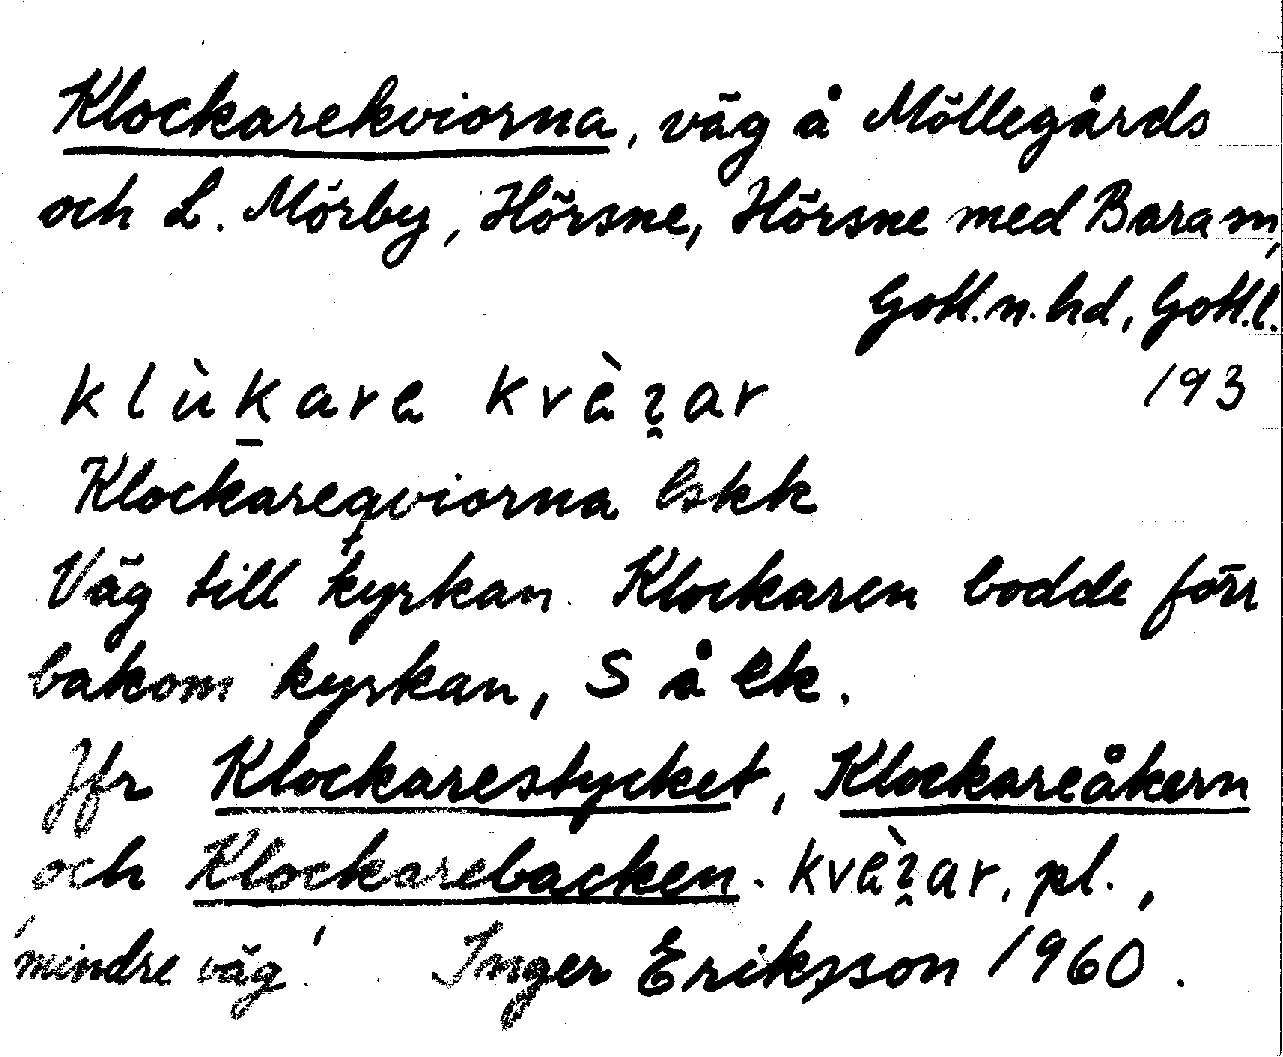 Klockarekviorna, väg å Möllegårds
och L. Mörby, Hörsne, Hörsne med Bara sn,
Gotl. n. hd, Gotl. l.
klùkara kvèɿ̯ar 193
Klockareqviorna lskk
Väg till kyrkan. Klockaren bodde förr
bakom kyrkan, S å ek.
Jfr Klockarestycket, Klockareåkern
och Klockarebacken. kvèɿ̯ar, pl.,
'mindre väg'. Inger Eriksson 1960.